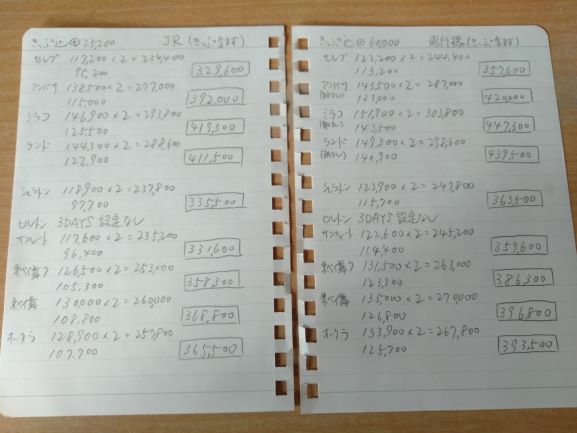 こぶ込 ④ 25,200 JR (こぶ含まず)
セレブ 117,200×2=234,400
95,200 329,600
アンバサ 138,500×2=277,000
115,000 392,000
ミラコ 146,900×2=293,800
125,500 419,300
ランド 144,300×2=288,600
122,900 411,500
シェラトン 118,900×2=237,800
97,700 335,500
ヒルトン 3DAYS 設定なし
サンルート 117,600×2=235,200
96,400 331,600
126,500×2=253,000
105,300 358,300
130,000×2=260,000
108,800 368,800
オークラ 128,900×2=257,800
107,700 365,500
こぶ込 ④ 60,000 飛行機 (こぶ含まず)
セレブ 122,200×2=244,400
113,200 357,600
アンバサ 143,500×2=287,000
133,000 420,000
ミラコ 151,900×2=303,800
143,500 447,300
ランド 149,300×2=298,600
140,900 439,500
シェラトン 123,900×2=247,800
115,700 363,500
ヒルトン 3DAYS 設定なし
サンルート 122,600×2=245,200
114,400 359,600
131,500×2=263,000
123,300 386,300
135,000×2=270,000
126,800 396,800
オークラ 133,900×2=267,800
125,700 393,500